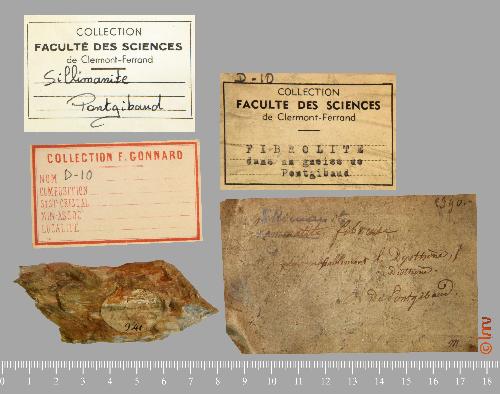 COLLECTION
FACULTÉ DES SCIENCES
de Clermont-Ferrand
Sillimanite
Pontgibaud
D-10
COLLECTION
FACULTE DES SCIENCES
de Clermont-Ferrand
FIBROLITE
dans un gneiss de
Pontgibaud
COLLECTION F. GONNARD
NUM D-10
COMPOSITION
SYST-CRISTAL
MIN-ASSOC
LOCALITÉ
fibreuse
De Pontgibaud.
941
© lmv
0 1 2 3 4 5 6 7 8 9 10 11 12 13 14 15 16 17 18